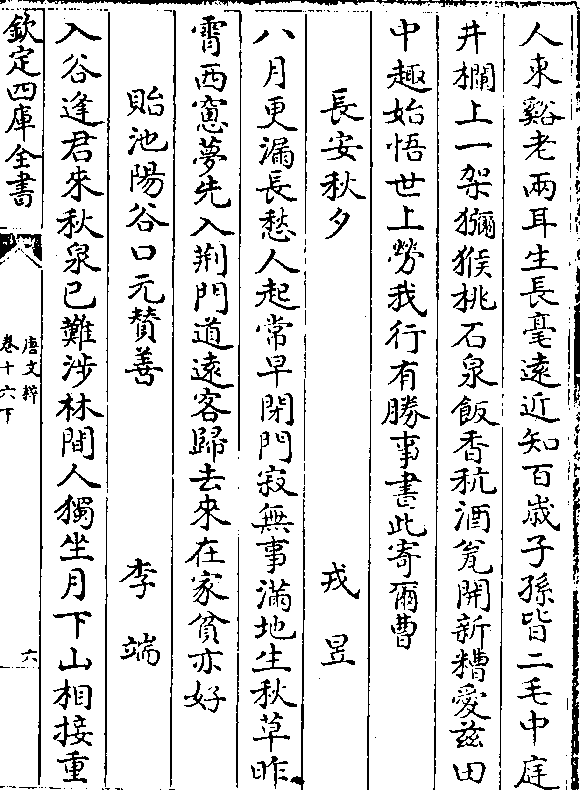 人東谿老兩耳生長毫遠近知百歳子孫皆二毛中庭
井欄上一架獼猴桃石泉飯香秔酒瓮開新糟愛兹田
中趣始悟世上勞我行有勝事書此寄爾曹
長安秋夕 戎昱
八月更漏長愁人起常早閉門寂無事滿地生秋草昨
霄西窻夢先入荆門道遠客歸去來在家貧亦好
貽池陽谷口元贊善 李端
入谷逢君來秋泉已難涉林間人獨坐月下山相接重
欽定四庫全書
唐文粹
卷十六下
六